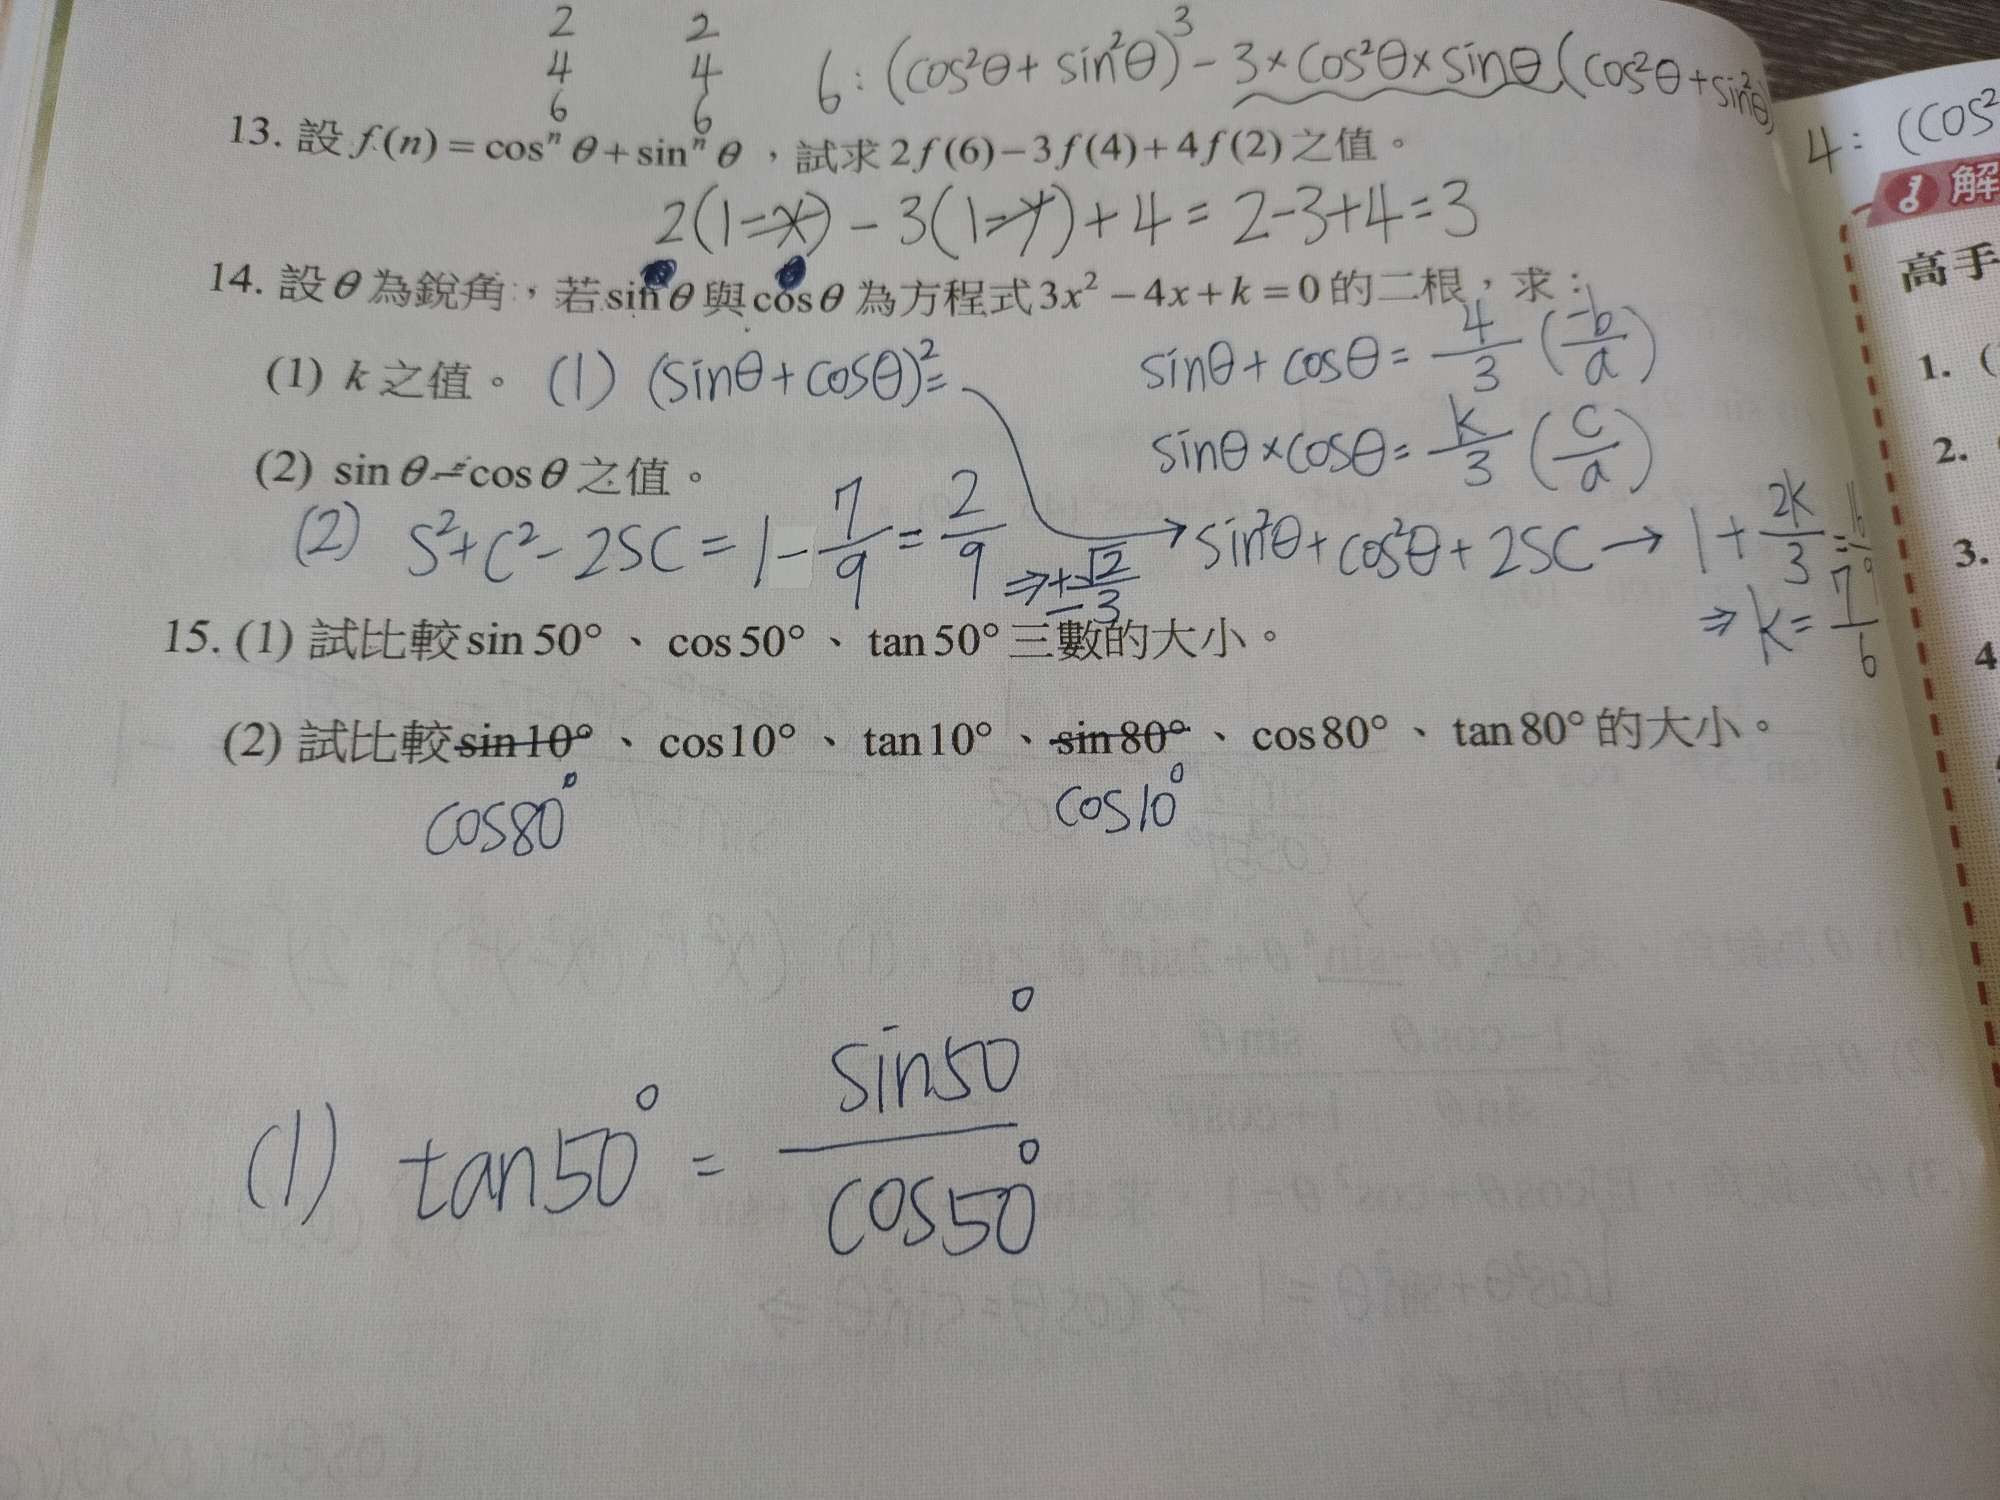 2 2
4 4
6 6
6: (cos²θ + sin²θ)³ - 3 × cos²θ × sinθ (cos²θ + sin²θ)
13. 設 f(n) = cosⁿ θ + sinⁿ θ ，試求 2f(6) − 3f(4) + 4f(2) 之值。
4: (cos²
2(1-x) - 3(1-y) + 4 = 2-3+4 = 3
解
高手
14. 設 θ 為銳角，若 sin θ 與 cos θ 為方程式 3x² − 4x + k = 0 的二根，求：
sinθ + cosθ = 4/3 (-b/a)
(1) k 之值。 (1) (sinθ + cosθ)² =
1. (
sinθ × cosθ = k/3 (c/a)
(2) sin θ − cos θ 之值。
2.
(2) S² + C² - 2SC = 1 - 7/9 = 2/9 ⇒ ± √2/3
→ sin²θ + cos²θ + 2SC → 1 + 2k/3 = 16/9
3.
⇒ k = 7/6
15. (1) 試比較 sin 50° 、 cos 50° 、 tan 50° 三數的大小。
4
(2) 試比較 sin 10° 、 cos 10° 、 tan 10° 、 sin 80° 、 cos 80° 、 tan 80° 的大小。
cos80° cos10°
(1) tan50° = sin50° / cos50°